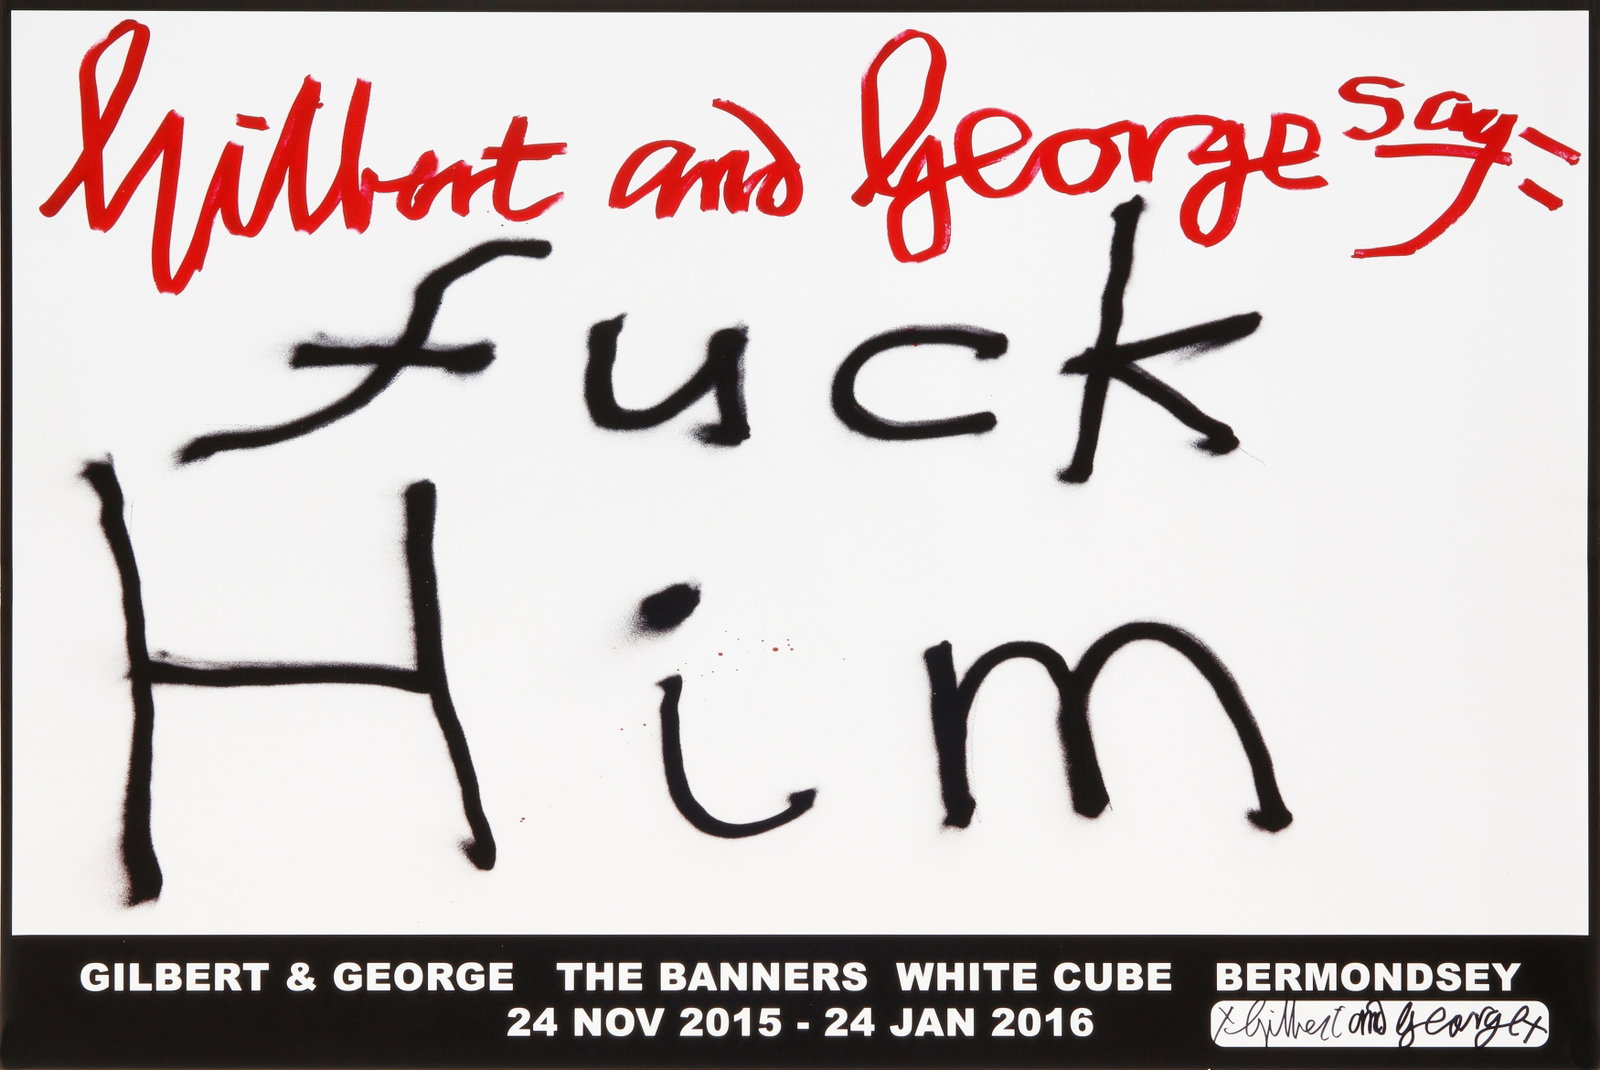 Gilbert and George say:=
fuck
Him
GILBERT & GEORGE THE BANNERS WHITE CUBE BERMONDSEY
24 NOV 2015 - 24 JAN 2016
x Gilbert and George x